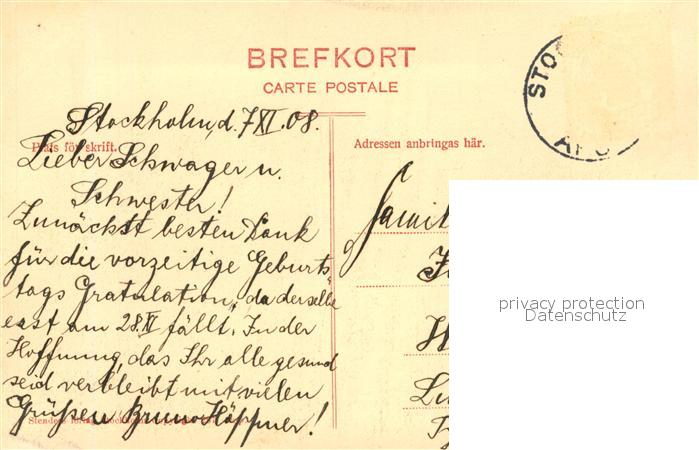 BREFKORT
CARTE POSTALE
STO
Stockholm, d. 7/XI. 08.
Plats för skrift.
Adressen anbringas här.
Lieber Schwager u.
Schwester!
Zunächst besten Dank
für die vorzeitige Geburts
tags Gratulation, da derselbe
erst am 28. XI fällt. In der
Hoffnung, das Ihr alle gesund
seid verbleibt mit vielen
Grüßen Bruno Höppner!
Famil
privacy protection
Datenschutz